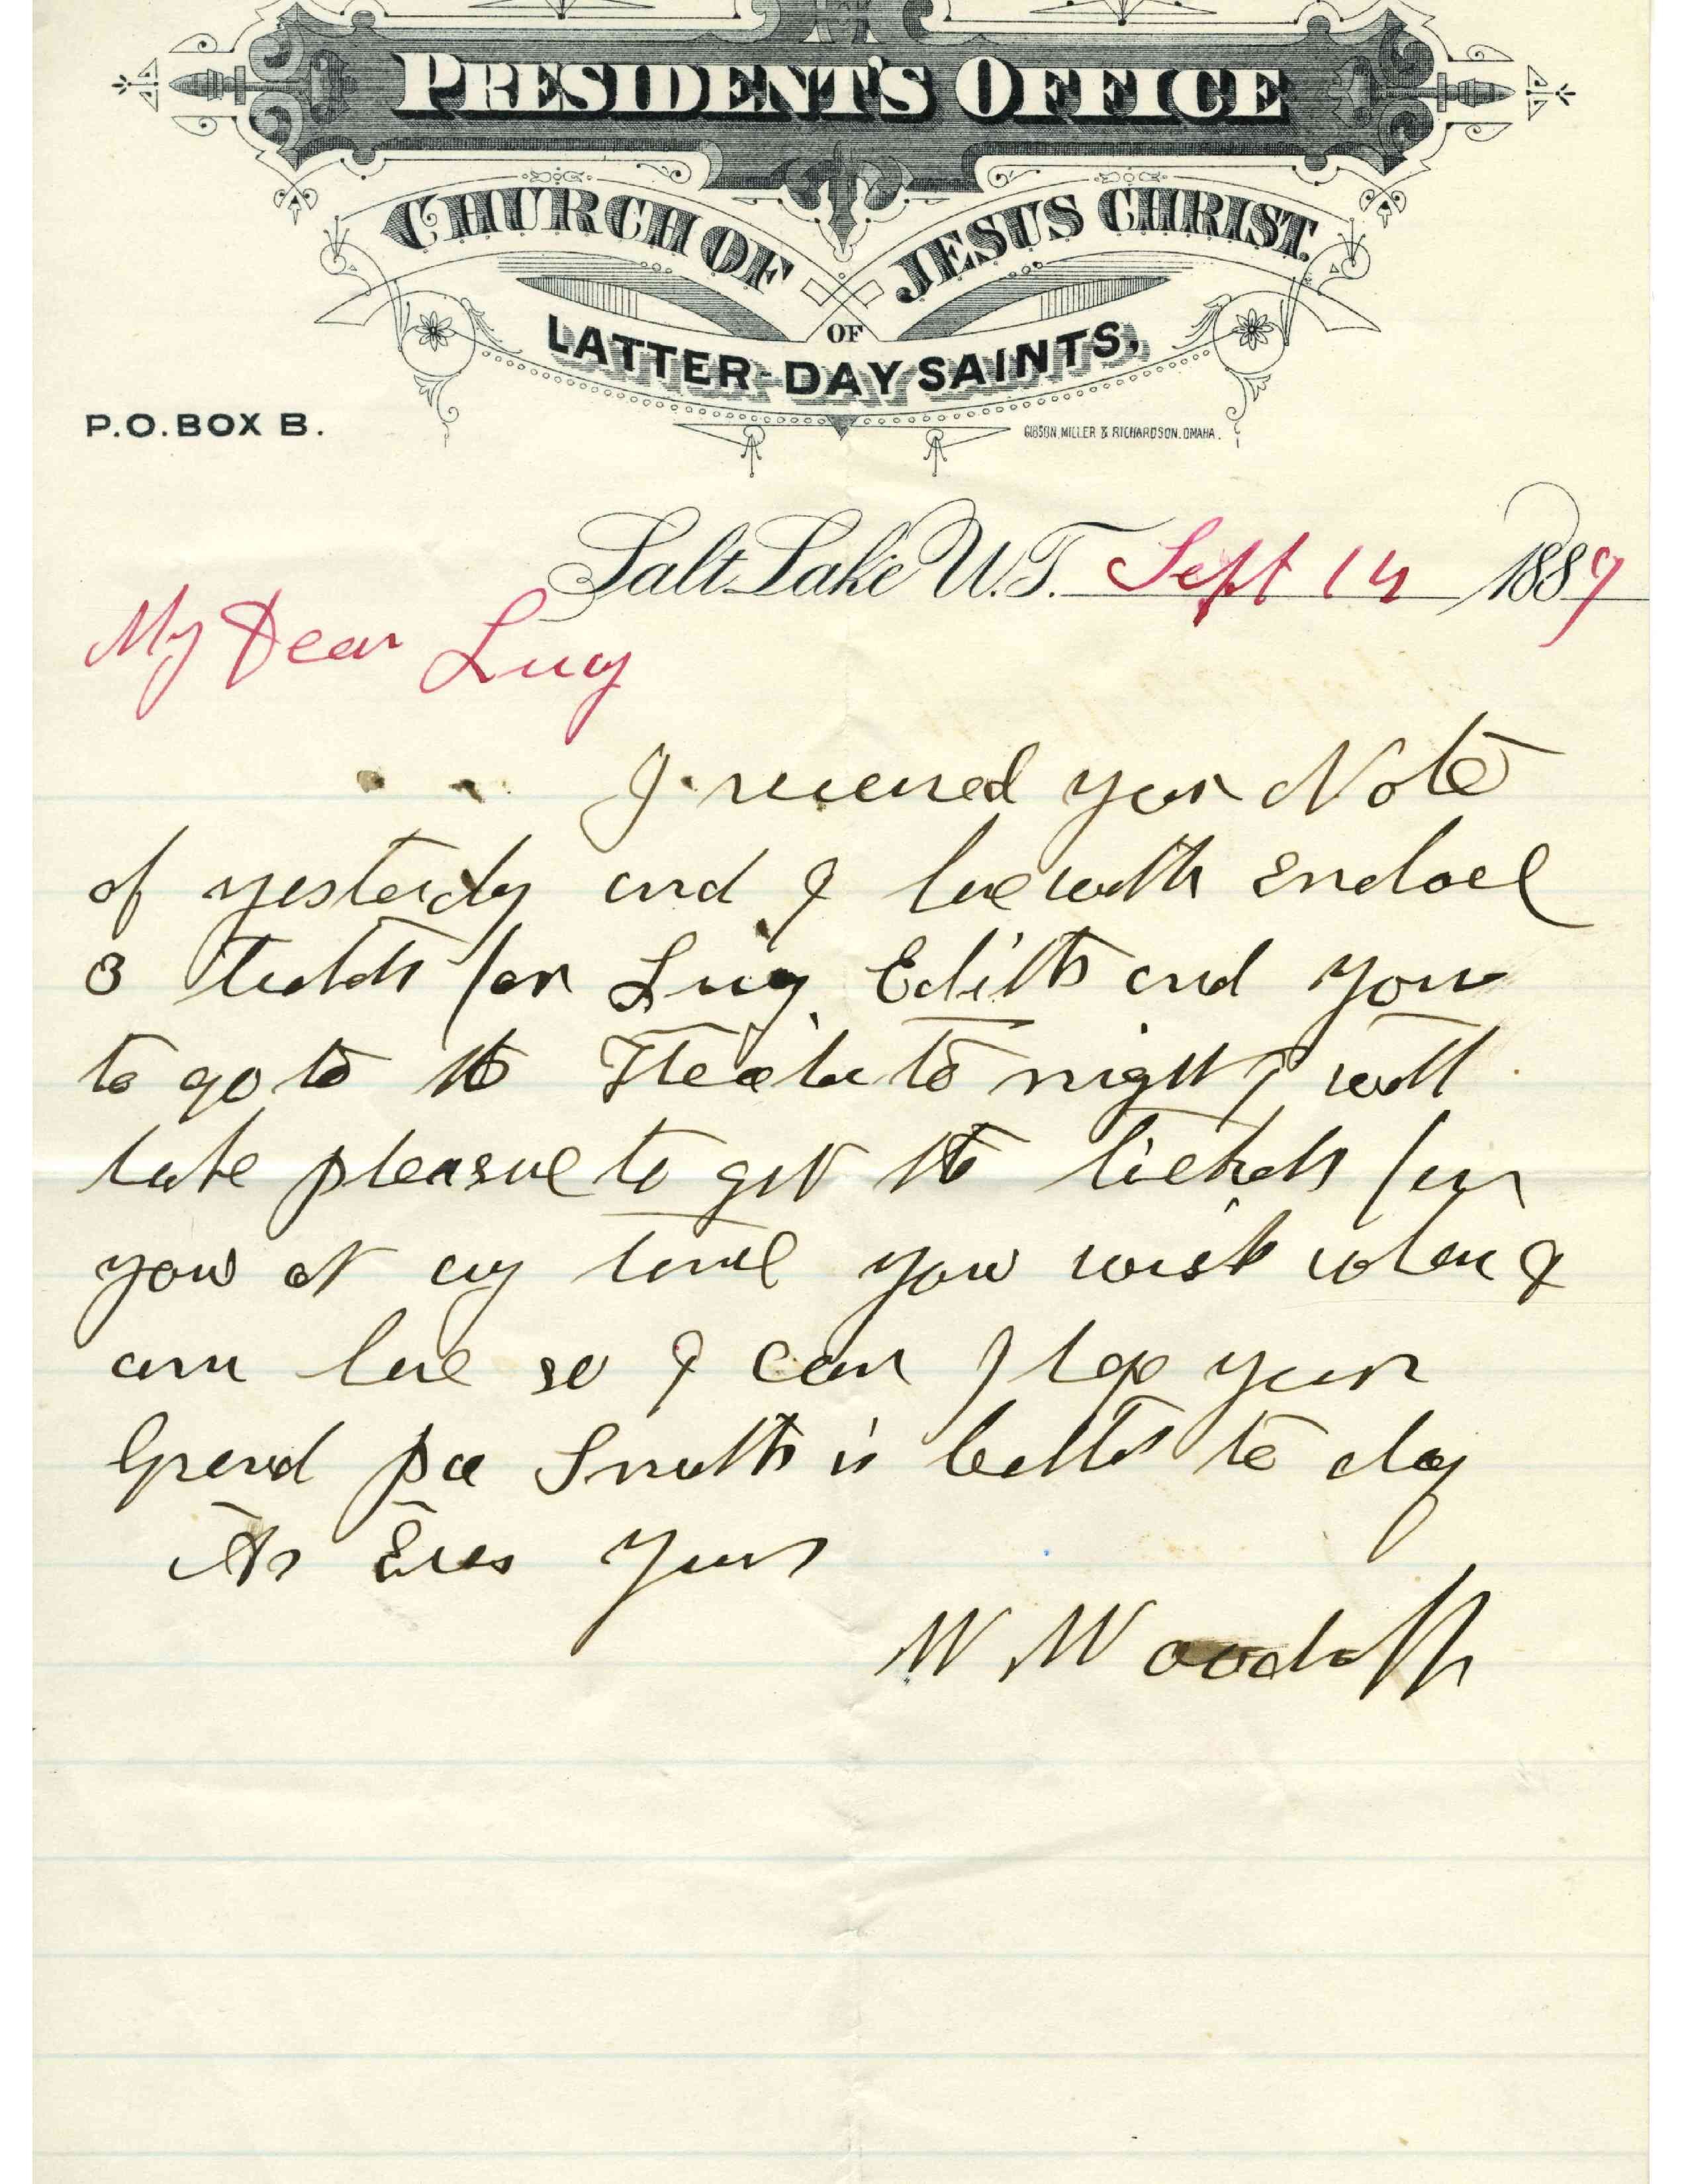 PRESIDENT'S OFFICE
CHURCH OF JESUS CHRIST
OF
LATTER-DAY SAINTS,
P.O. BOX B.
GIBSON, MILLER & RICHARDSON, OMAHA.
Salt Lake U.T. Sept 14 1889
My Dear Lucy
I received your Note
of yesterday and I herewith Enclose
3 tickets for Lucy Edith and you
to go to the Theater to night I will
take pleasure to get the tickets for
you at any time you wish when I
am here so I can I hope your
Grand pa Smith is better to day
As Ever Yours
W. Woodruff